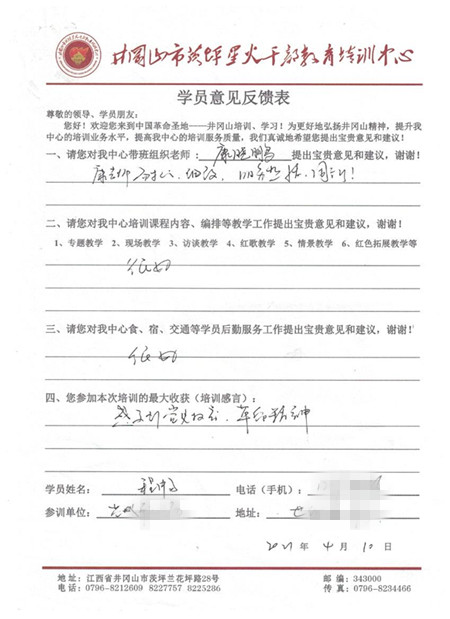 井冈山市茨坪星火干部教育培训中心
学员意见反馈表
尊敬的领导、学员朋友：
您好！欢迎您来到中国革命圣地——井冈山培训、学习！为更好地弘扬井冈山精神，提升我中
心的培训业务水平，提高我中心的培训服务质量，我们真诚地希望您留下宝贵意见和建议！
一、请您对我中心带班组织老师：康晓鹏 提出宝贵意见和建议，谢谢！
康老师
二、请您对我中心培训课程内容、编排等教学工作提出宝贵意见和建议，谢谢！
1、专题教学 2、现场教学 3、访谈教学 4、红歌教学 5、情景教学 6、红色拓展教学等
很好
三、请您对我中心食、宿、交通等学员后勤服务工作提出宝贵意见和建议，谢谢！
很好
四、您参加本次培训的最大收获（培训感言）：
学员姓名： 电话（手机）：
参训单位： 地址：
2021 年 4 月 10 日
地址：江西省井冈山市茨坪兰花坪路28号 邮编：343000
电话：0796-8212609 8227757 8225286 传真：0796-8234466